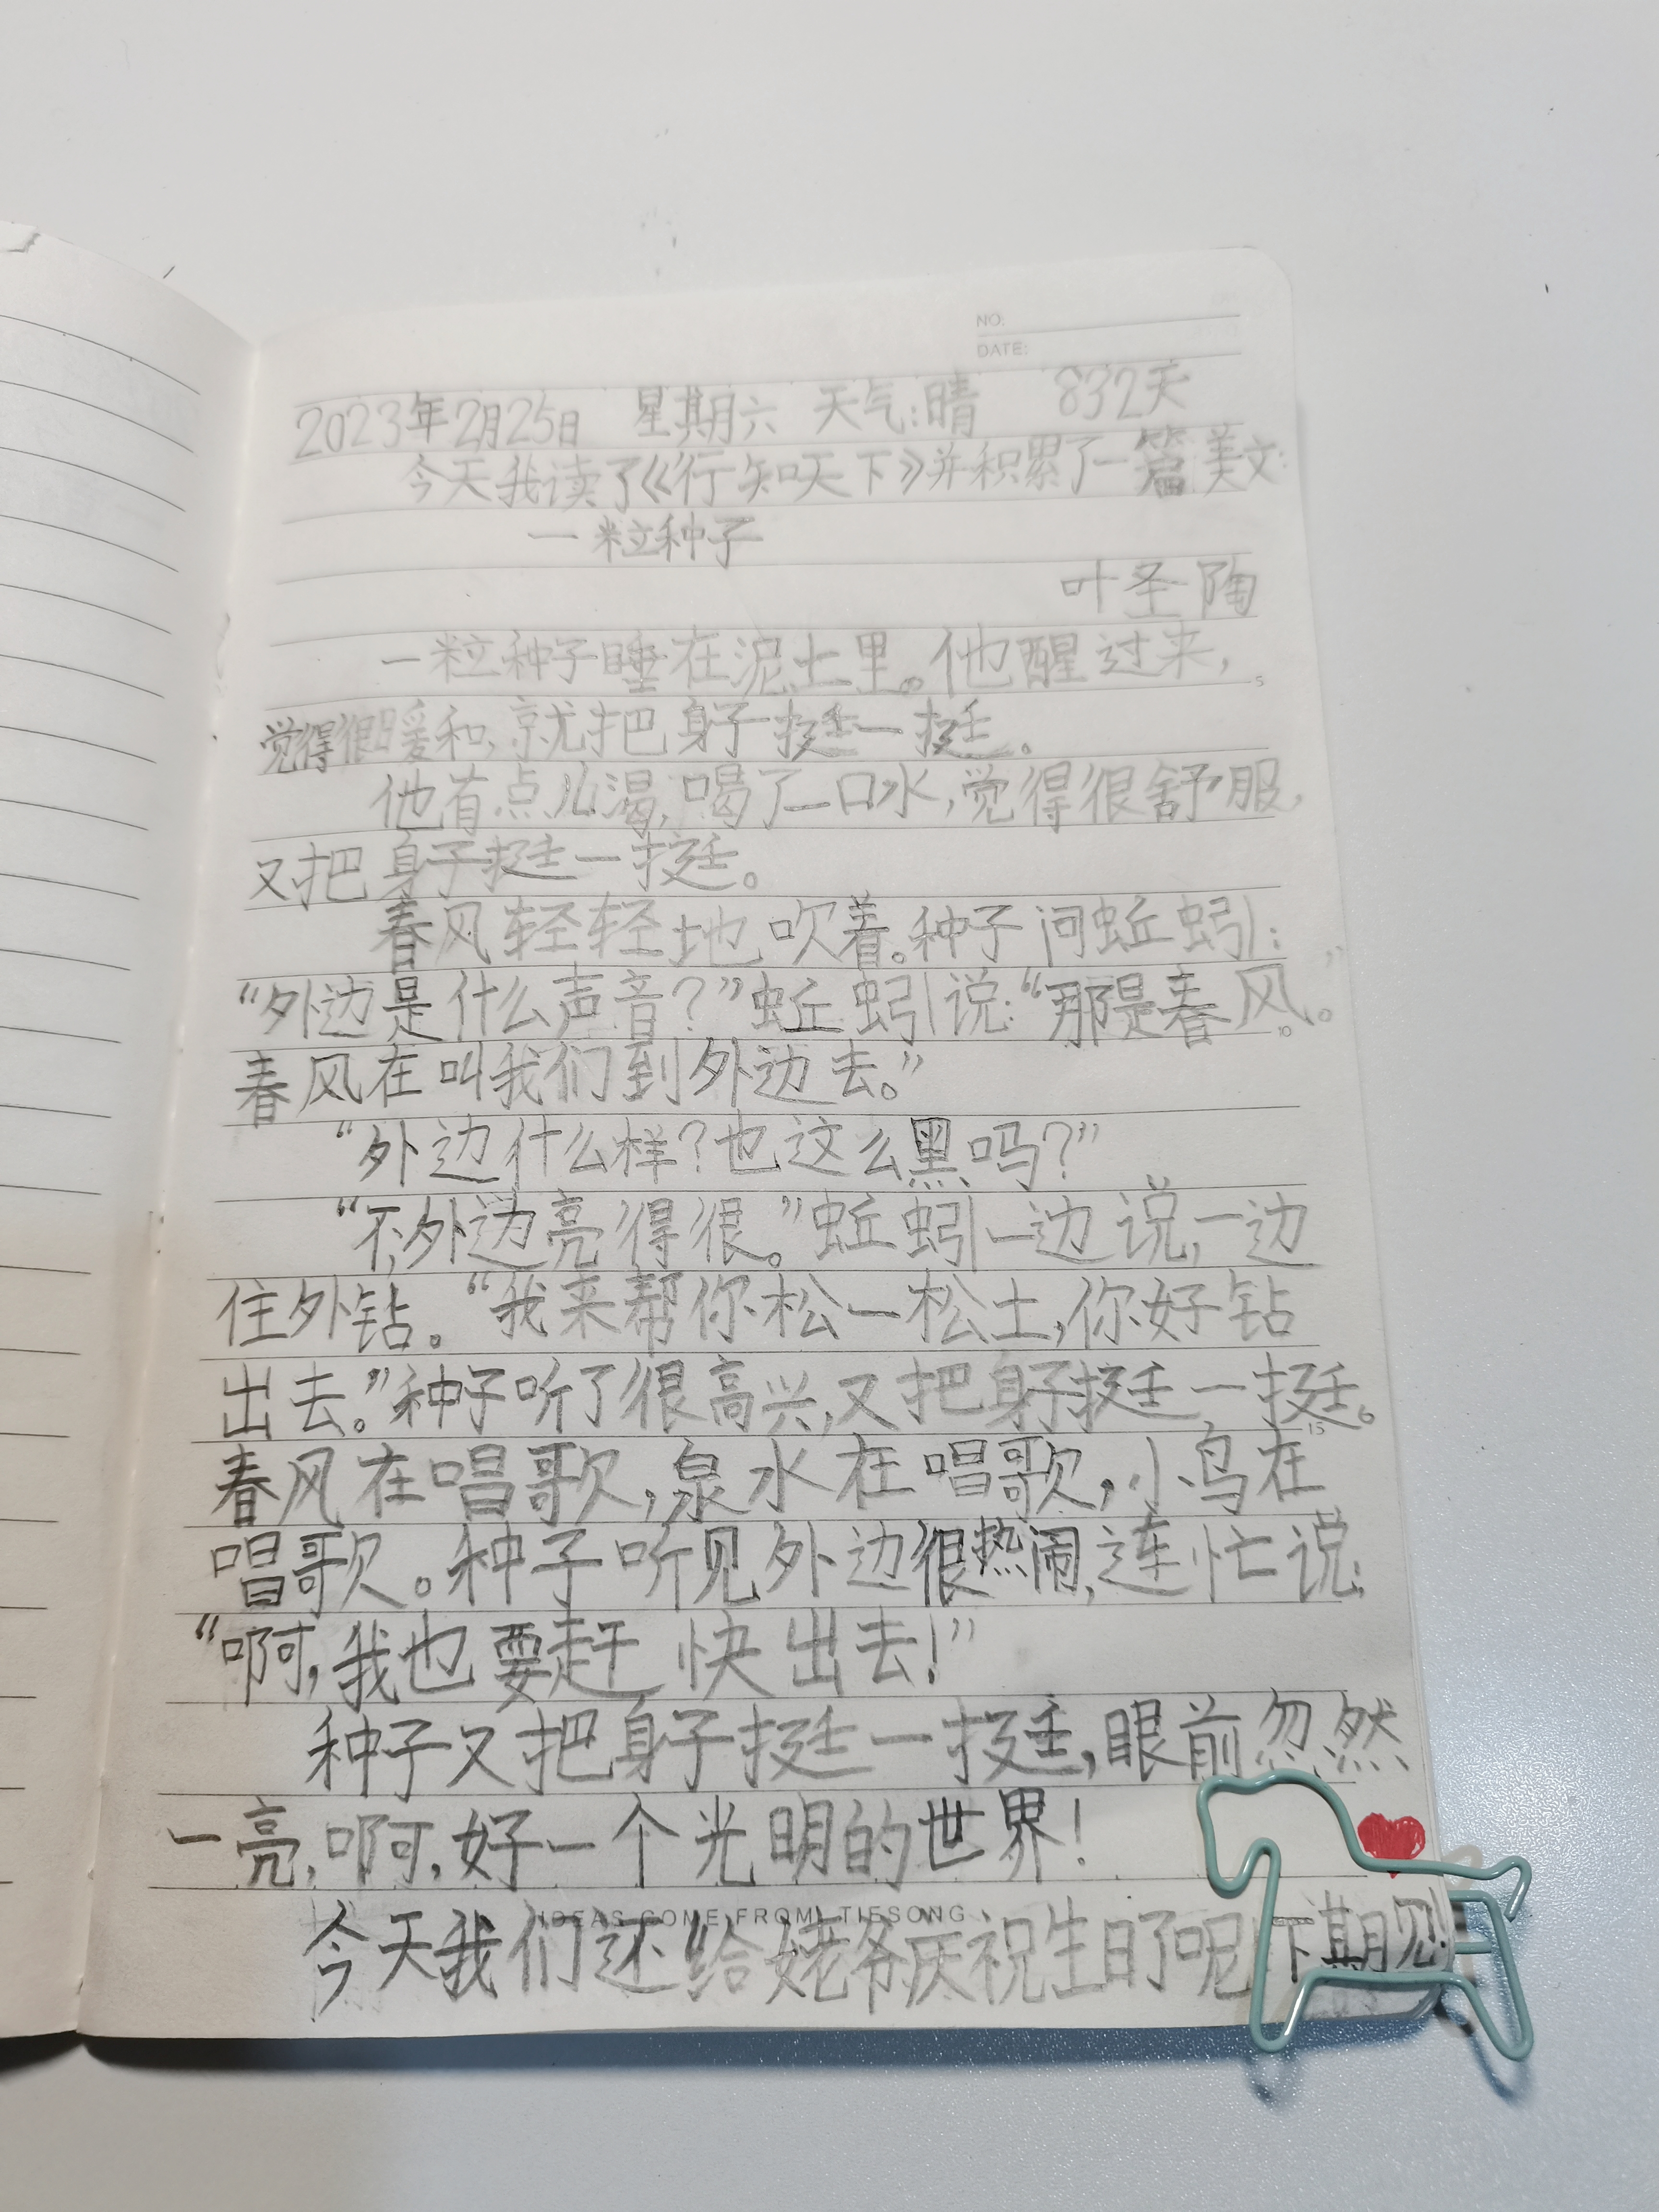 NO:
DATE:
2023年2月25日 星期六 天气:晴 832天
今天我读了《行知天下》并积累了一篇美文:
一粒种子
叶圣陶
一粒种子睡在泥土里。他醒过来,
5
觉得很暖和,就把身子挺一挺。
他有点儿渴,喝了一口水,觉得很舒服,
又把身子挺一挺。
春风轻轻地吹着。种子问蚯蚓:
“外边是什么声音?”蚯蚓说:“那是春风。
10
春风在叫我们到外边去。”
“外边什么样?也这么黑吗?”
“不,外边亮得很。”蚯蚓一边说,一边
住外钻。“我来帮你松一松土,你好钻
出去。”种子听了很高兴,又把身子挺一挺。
15
春风在唱歌,泉水在唱歌,小鸟在
唱歌。种子听见外边很热闹,连忙说:
“啊,我也要赶快出去!”
种子又把身子挺一挺,眼前忽然
一亮,啊,好一个光明的世界!
IDEAS COME FROM TIESONG
今天我们还给姥爷庆祝生日了呢!下期见!